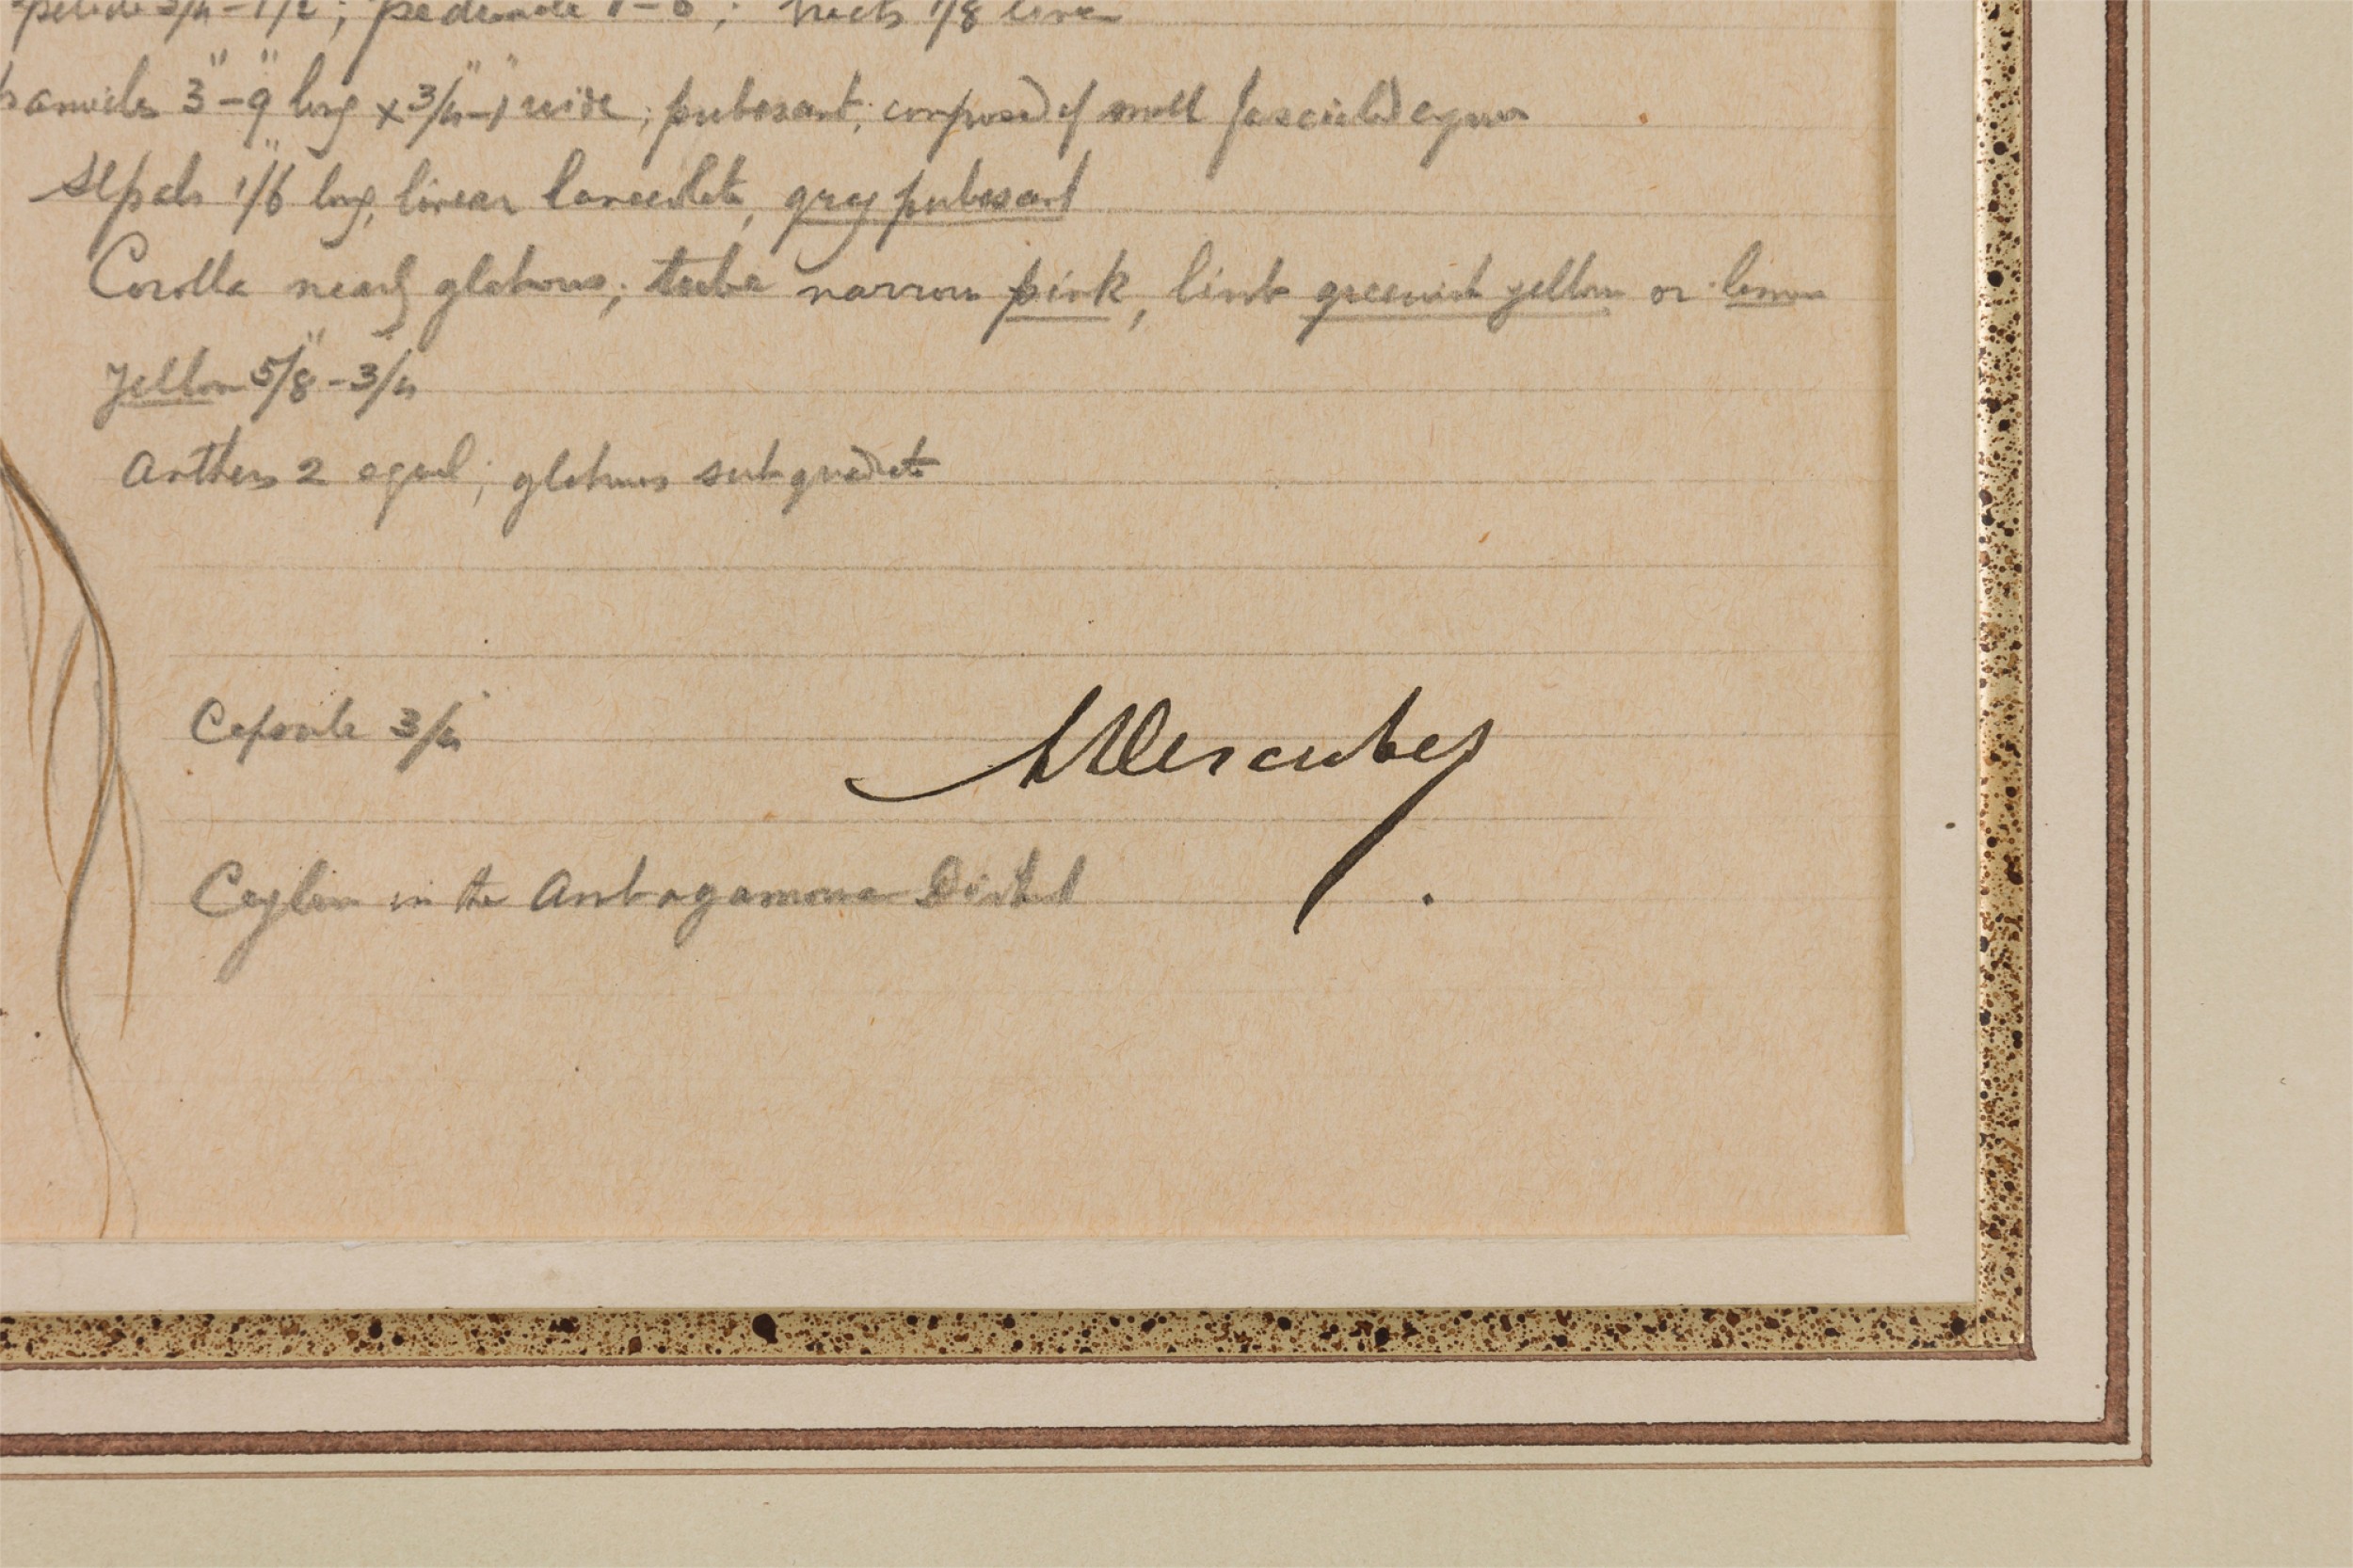 petiole 3/4-1 1/2; peduncle 1-6"; bracts 1/8 linear
panicles 3"-9" long x 3/4"-1" wide; pubesant; composed of small fascicled cymes
Sepals 1/6" long, linear lanceolate, grey pubesant
Corolla nearly glabrous; tube narrow pink, limb greenish yellow or lemon
yellow 5/8"-3/4
Anthers 2 equal; glabrous subquadrate
Capsule 3/4"
Ceylon in the Ambagamowa District